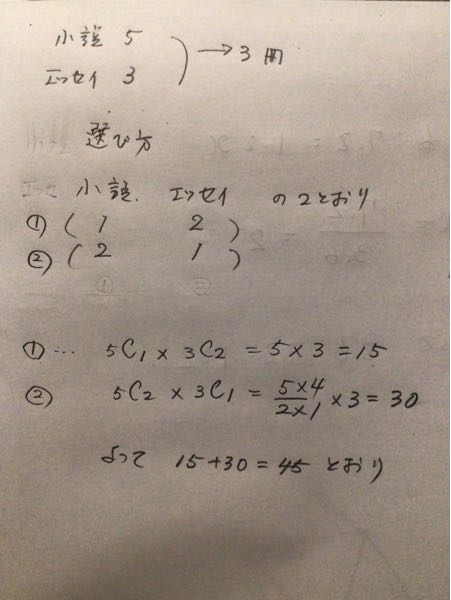 小説 5
エッセイ 3
→ 3冊
選び方
小説. エッセイ の2とおり
① ( 1 2 )
② ( 2 1 )
①… 5C1 × 3C2 = 5×3 = 15
② 5C2 × 3C1 = 5×4/2×1 ×3 = 30
よって 15+30 = 45 とおり